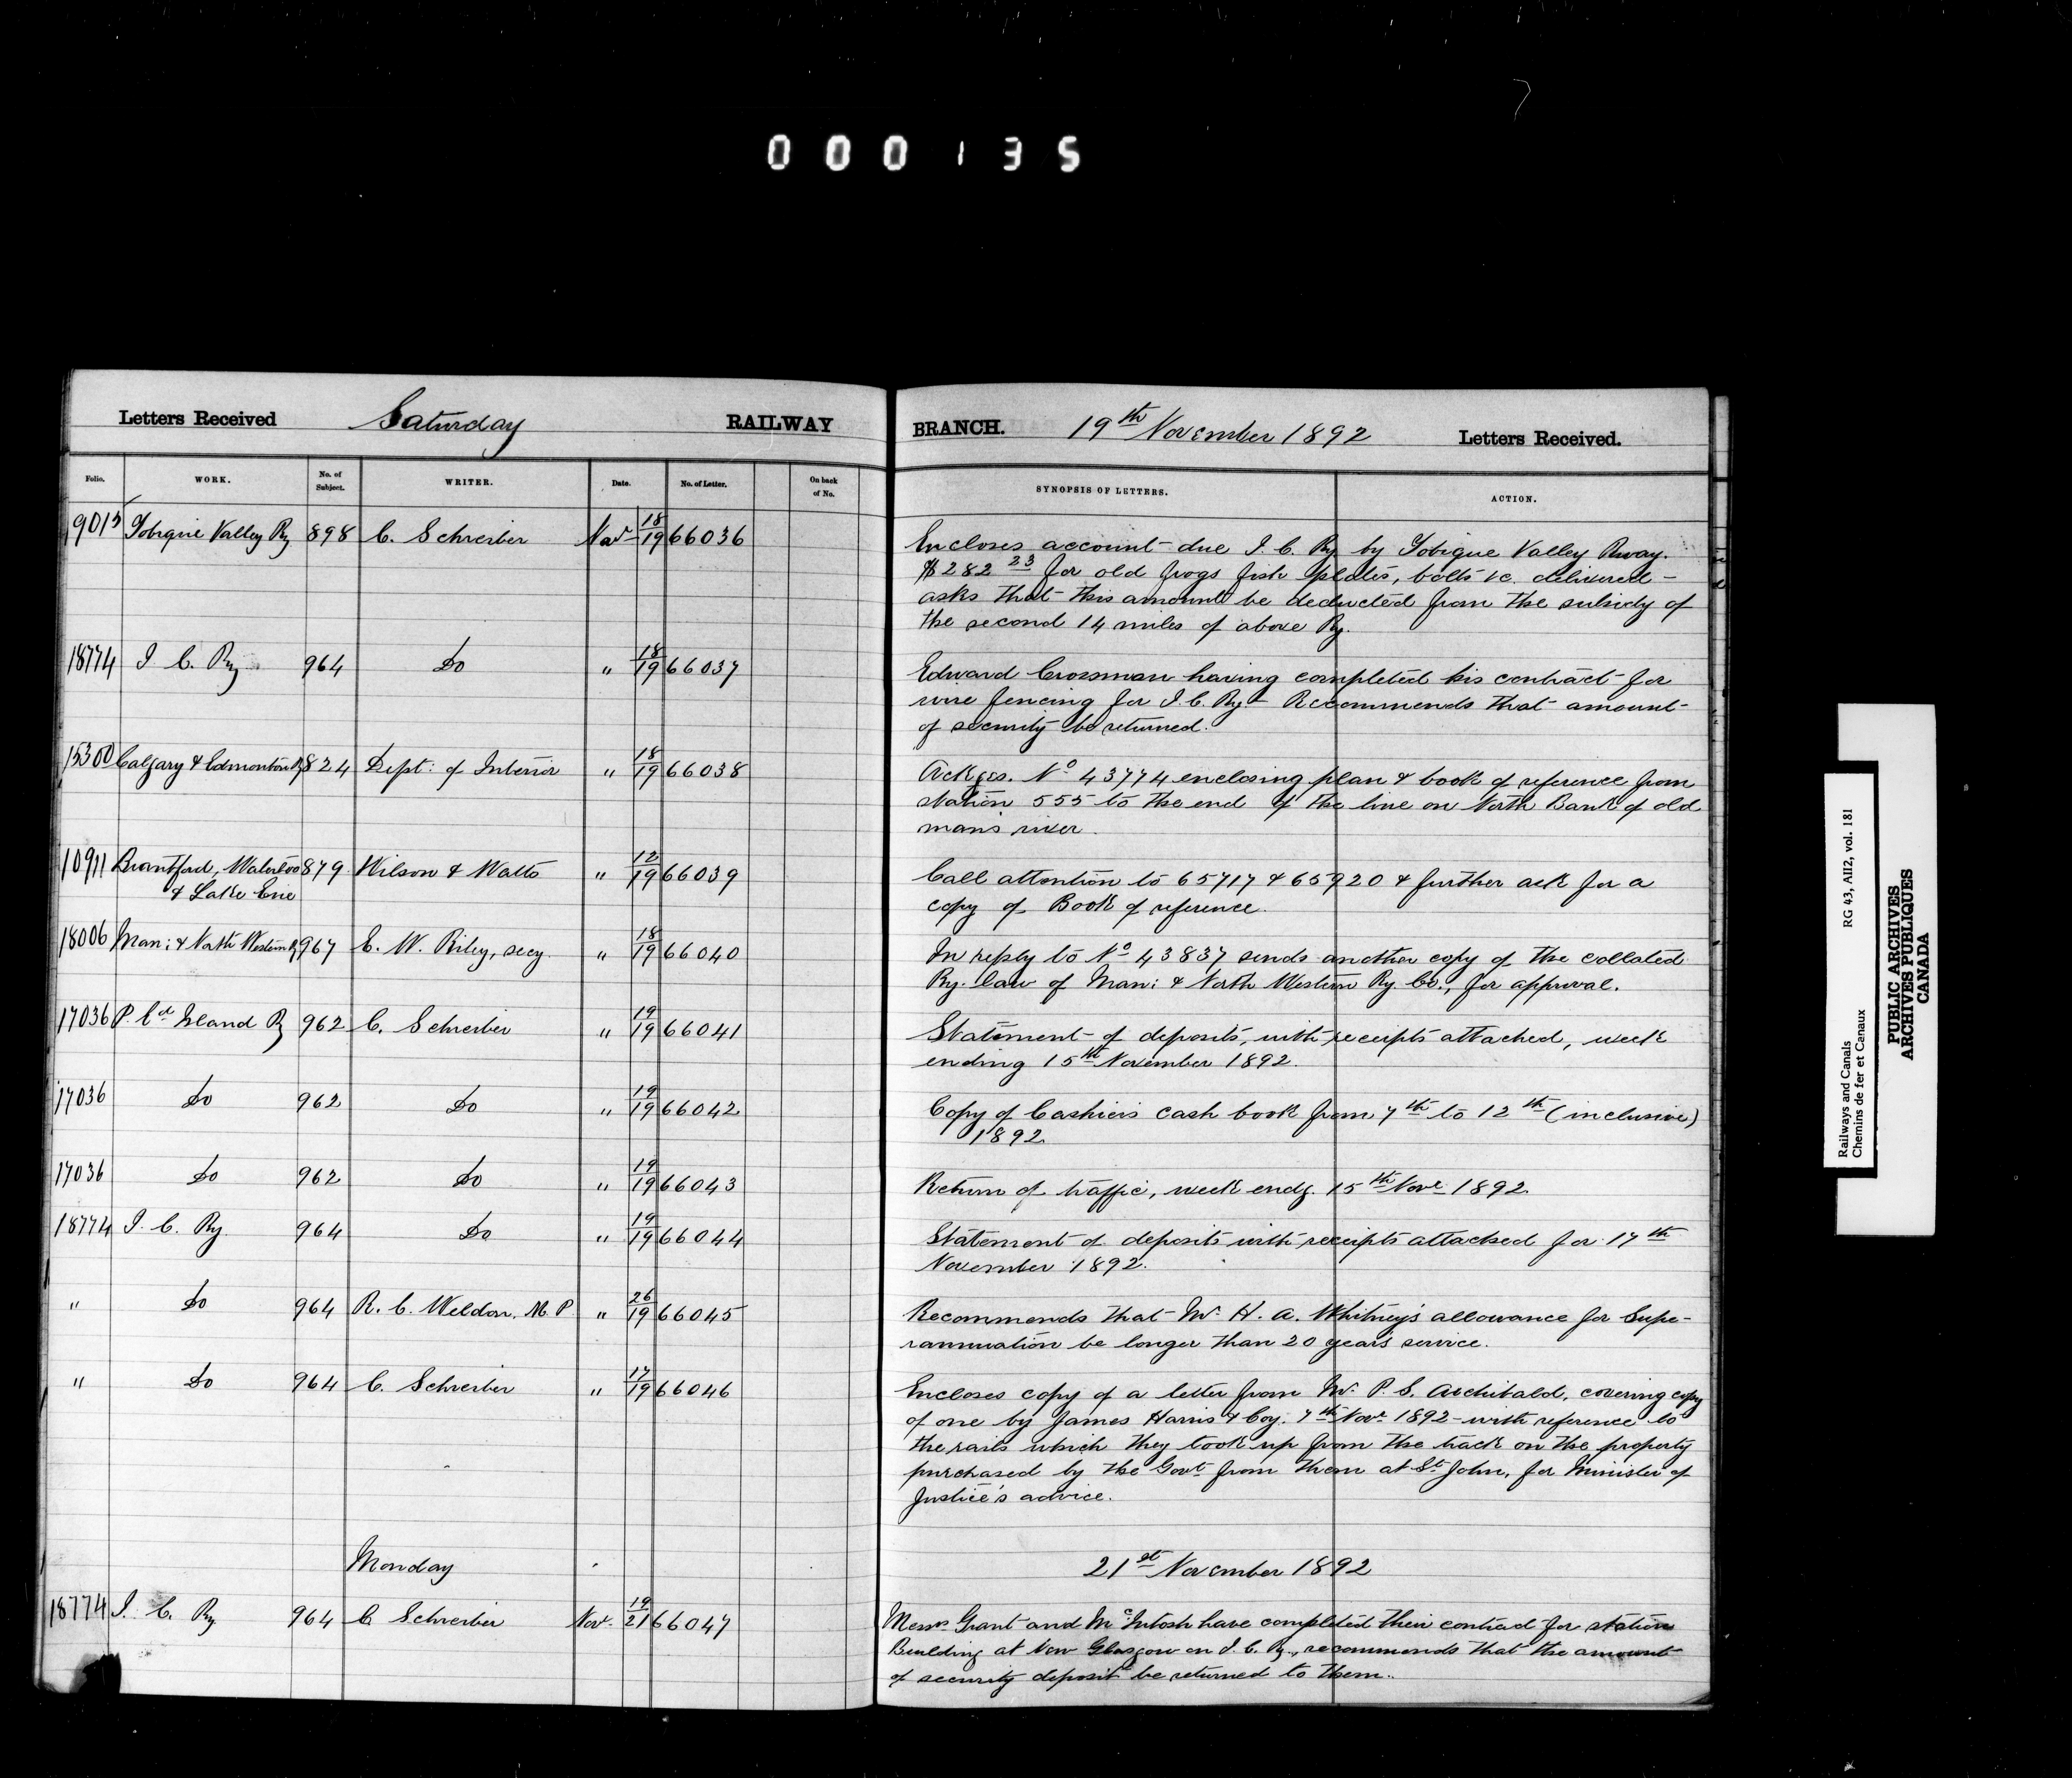 000135
Letters Received Saturday RAILWAY BRANCH. 19th November 1892 Letters Received.
Folio. WORK. No. of Subject. WRITER. Date. No. of Letter. On back of No. SYNOPSIS OF LETTERS. ACTION.
19015 Tobique Valley Ry 898 C. Schreiber Nov 18/19 66036 Encloses account due I. C. Ry by Tobique Valley Rway.
$282 23 for old frogs fish plates, bolts &c. delivered -
asks that this amount be deducted from the subsidy of
the second 14 miles of above Ry.
18774 I C. Ry 964 Do " 18/19 66037 Edward Crossman having completed his contract for
wire fencing for I. C. Ry. - Recommends that amount
of security be returned.
15300 Calgary & Edmonton Ry 824 Dept: of Interior " 18/19 66038 Ackges. No 43774 enclosing plan & book of reference from
station 555 to the end of the line on North Bank of old
man's river.
10911 Brantford, Waterloo 879 Wilson & Watts " 12/19 66039 Call attention to 65717 & 65920 & further ask for a
& Lake Erie copy of Book of reference.
18006 Man: & North Western Ry 967 E. W. Riley, secy. " 18/19 66040 In reply to No 43837 sends another copy of the collated
By-law of Man: & North Western Ry. Co., for approval.
17036 P. Ed Island Ry 962 C. Schreiber " 19/19 66041 Statement of deposits, with receipts attached, week
ending 15th November 1892.
17036 Do 962 Do " 19/19 66042 Copy of Cashier's cash book from 7th to 12th (inclusive)
1892.
17036 Do 962 Do " 19/19 66043 Return of traffic, week endg. 15th Novr 1892.
18774 I. C. Ry. 964 Do " 19/19 66044 Statement of deposits with receipts attached for 17th
November 1892.
" Do 964 R. C. Weldon, M. P. " 26/19 66045 Recommends that Mr. H. A. Whitney's allowance for Supe-
rannuation be longer than 20 years service.
" Do 964 C. Schreiber " 17/19 66046 Encloses copy of a letter from Mr. P. S. Archibald, covering copy
of one by James Harris & Coy. 7th Novr 1892 - with reference to
the rails which they took up from the track on the property
purchased by the Govt from them at St. John, for Minister of
Justice's advice.
Monday 21st November 1892
18774 I. C. Ry 964 C Schreiber Nov. 19/21 66047 Messrs Grant and McIntosh have completed their contract for station
Building at New Glasgow on I. C. Ry., recommends that the amount
of security deposit be returned to them.
Railways and Canals RG 43, AII2, vol. 181
Chemins de fer et Canaux
PUBLIC ARCHIVES
ARCHIVES PUBLIQUES
CANADA